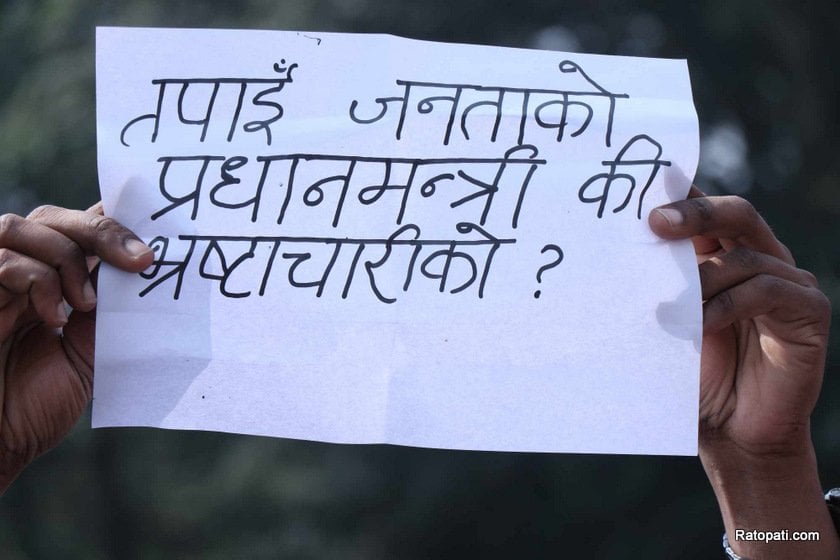 तपाइँ जनताको
प्रधानमन्त्री की
भ्रष्टाचारीको ?
Ratopati.com